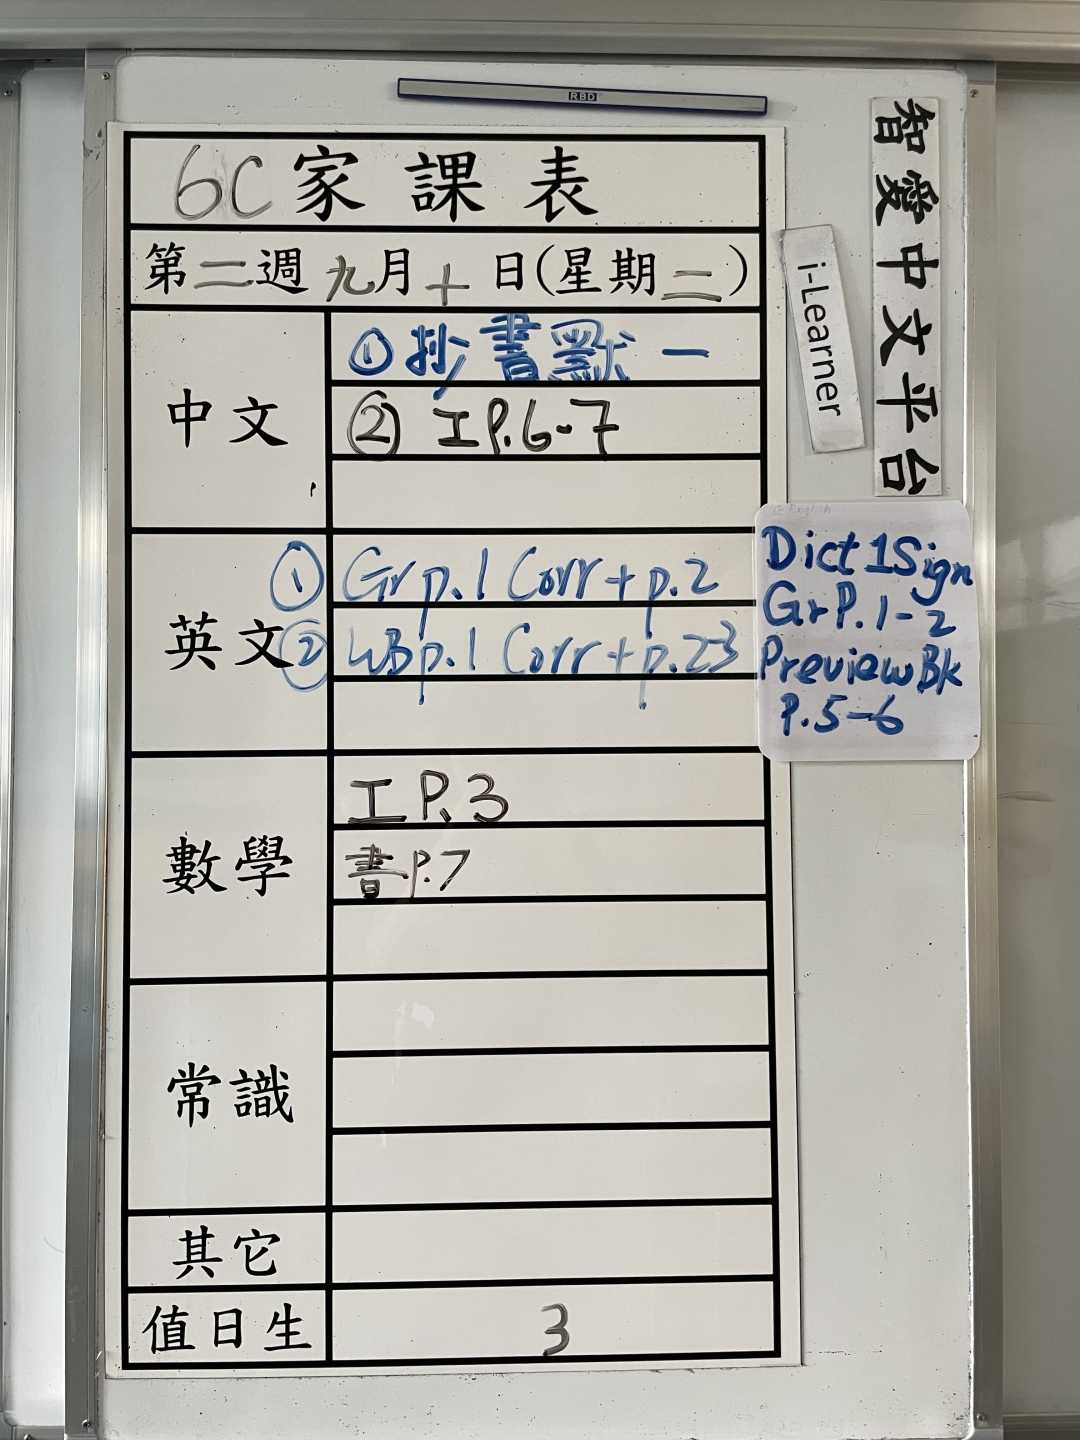 RBD
6C家課表
第二週九月十日(星期二)
中文
①抄書默一
②工P.6-7
英文
①Gr p.1 Corr + p.2
②WB p.1 Corr + p.23
數學
工P.3
書P.7
常識
其它
值日生
3
智愛中文平台
i-Learner
E English
Dict 1 Sign
Gr P.1-2
Preview Bk
P.5-6